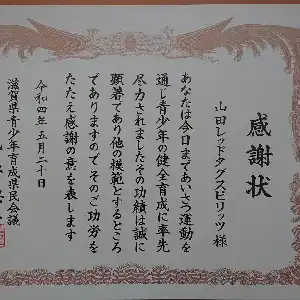 感謝状
山田レッドタグスピリッツ様
あなたは今日まであいさつ運動を
通じ青少年の健全育成に率先
尽力されましたその功績は誠に
顕著であり他の模範とするところ
でありますのでそのご功労を
たたえ感謝の意を表します
令和四年五月二十日
滋賀県青少年育成県民会議